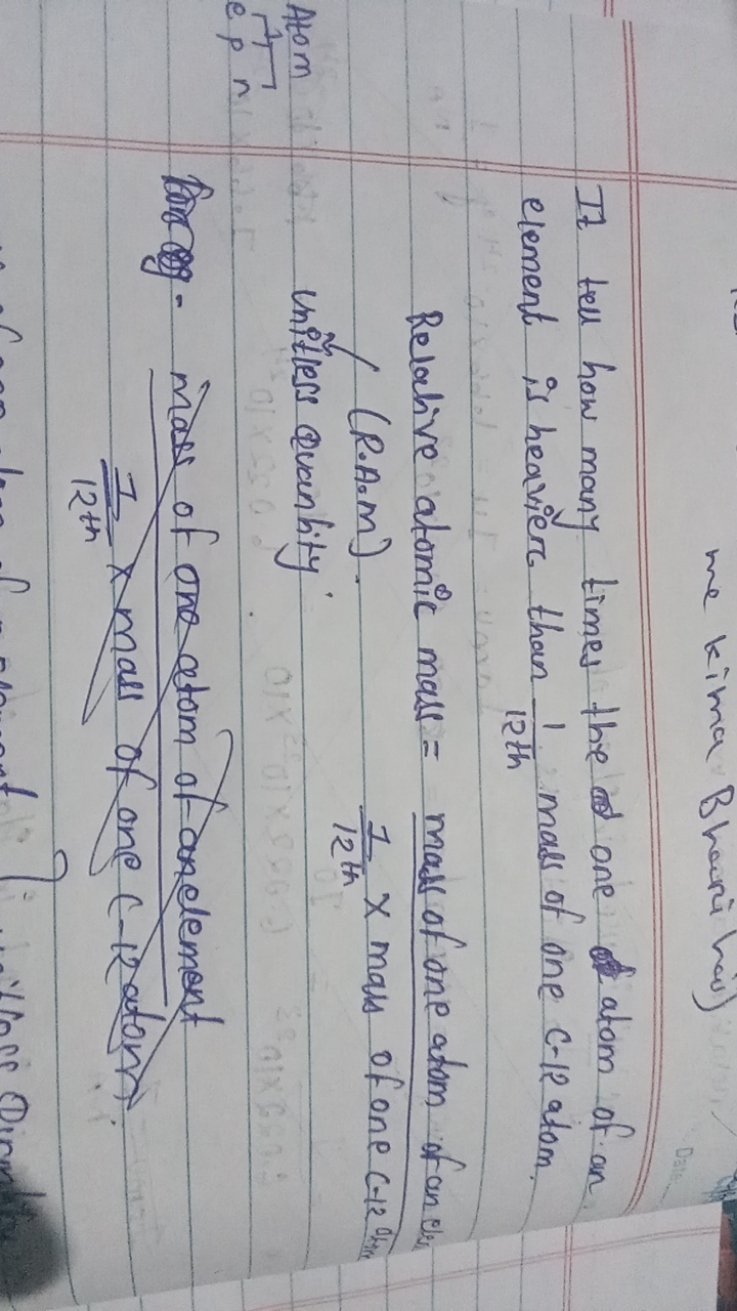 me kima Bhaari hai)
It tell how many times the one atom of an
element is heavier than 1/12th mass of one C-12 atom.
Relative atomic mass = mass of one atom of an ele
(R.A.M) 1/12th X mass of one C-12 atom
Unitless quantity.
Atom
e p n
mass of one atom of an element
1/12th X mass of one C-12 atom.